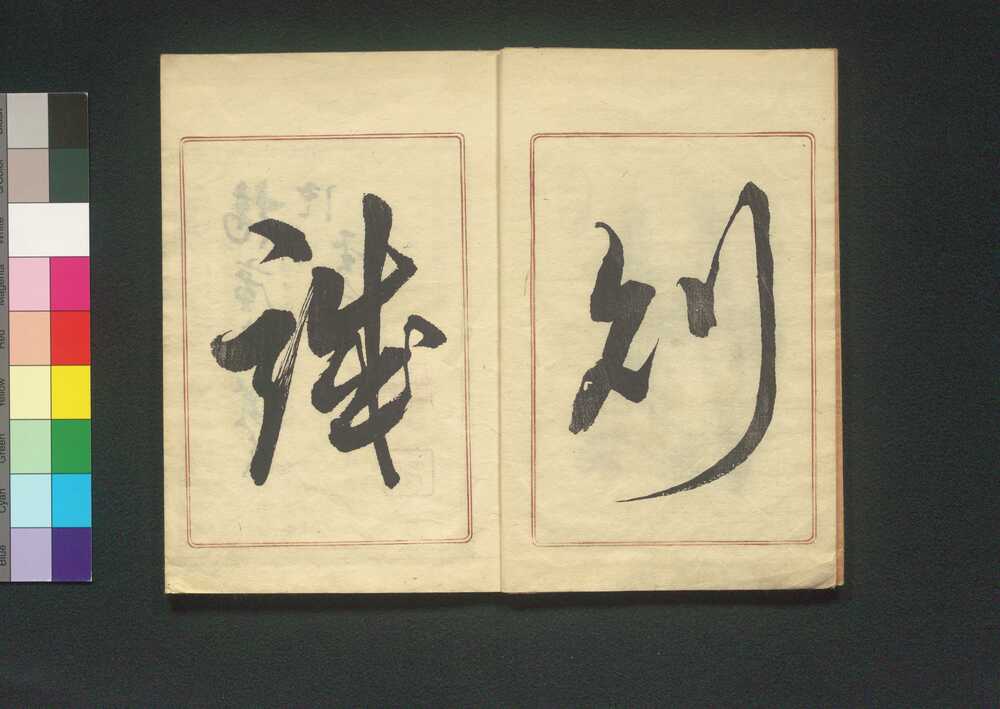 別
識
Black
3/Color
White
Magenta
Red
Yellow
Green
Cyan
Blue